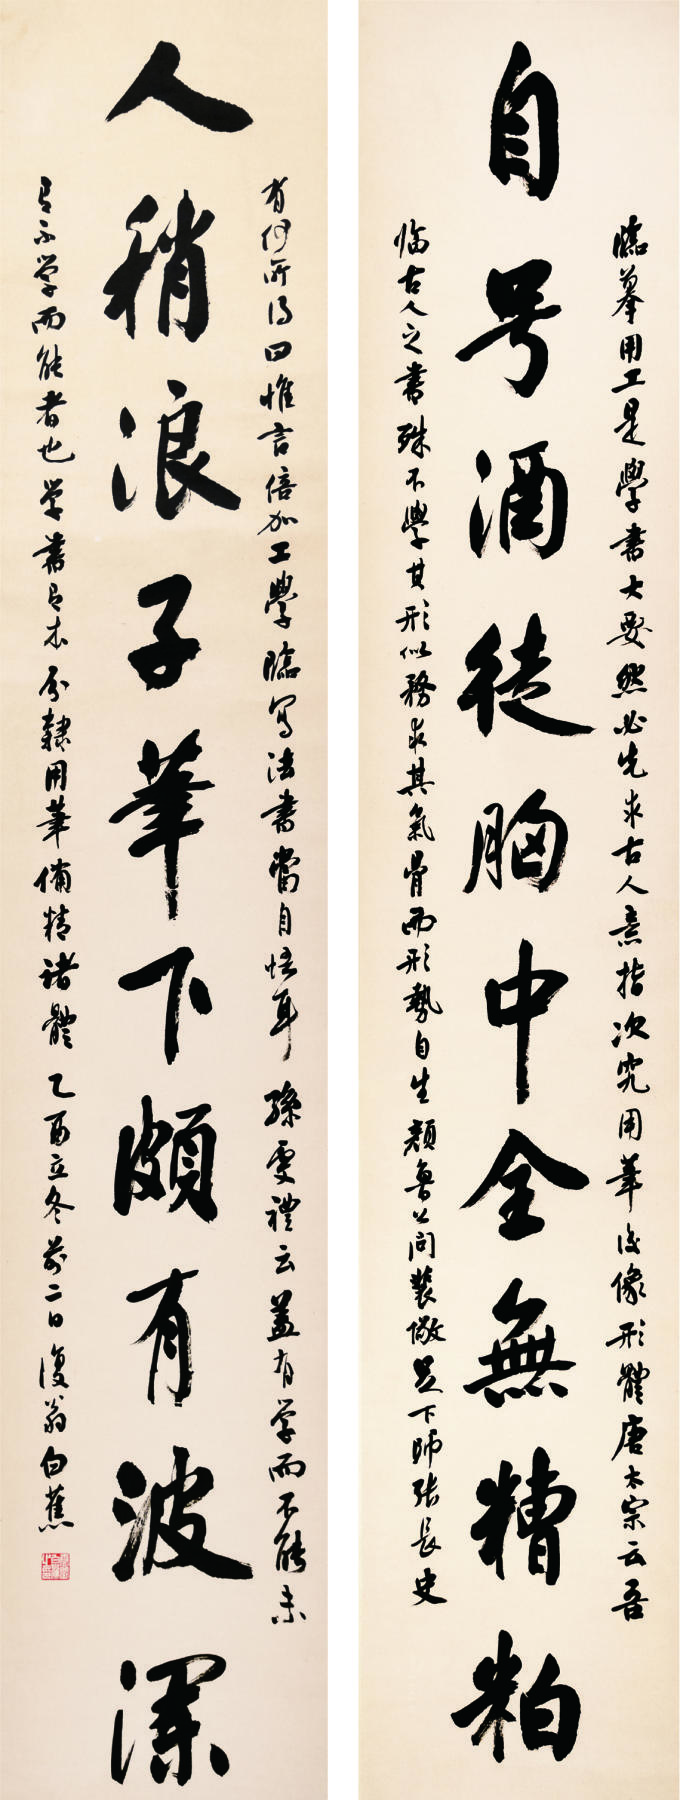 臨摹用工是學書大要然必先求古人意指次究用筆後像形體唐太宗云吾
自号酒徒胸中全無糟粕
临古人之書殊不學其形似務求其氣骨而形勢自生顏魯公問裴儆足下師張長史
有何所得曰惟言倍加工學臨写法書當自悟耳 孫虔禮云蓋有学而不能未
人稱浪子筆下頗有波瀾
有不学而能者也 学書有本 分隸用筆備精諸體 乙酉立冬前二日 復翁白蕉